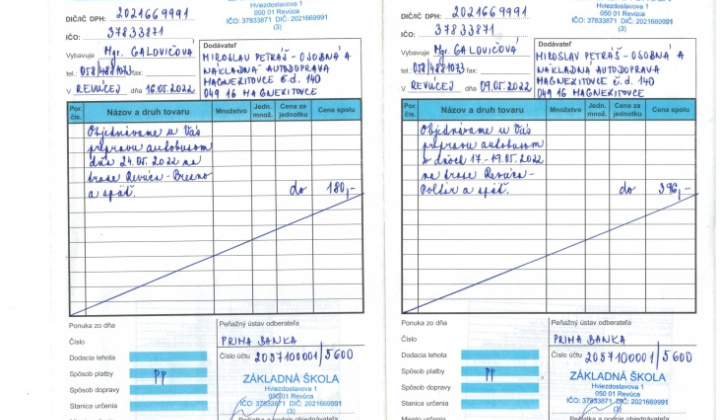 Hviezdoslavova 1
050 01 Revúca
IČO: 37833871 DIČ: 2021669991
(3)
DIČ/IČ DPH: 2021669991
IČO: 37833871
Vybavuje Mgr. GALOVIČOVÁ
tel. 058/4881073 fax:
V REVÚCEJ dňa 16.05.2022
Dodávateľ
MIROSLAV PETRÁŠ-OSOBNÁ A
NÁKLADNÁ AUTODOPRAVA
MAGNEZITOVCE č.d. 140
049 16 MAGNEZITOVCE
Por. čís. Názov a druh tovaru Množstvo Jedn. množ. Cena za jednotku Cena spolu
Objednávame u Vás
prepravu autobusom
dňa 24.05.2022 na
trase Revúca-Brezno
a späť. do 180,-
Ponuka zo dňa
Číslo
Dodacia lehota
Spôsob platby PP
Spôsob dopravy
Stanica určenia
Peňažný ústav odberateľa
PRIMA BANKA
Číslo účtu 2057100001/5600
ZÁKLADNÁ ŠKOLA
Hviezdoslavova 1
050 01 Revúca
IČO: 37833871 DIČ: 2021669991
(3)
Hviezdoslavova 1
050 01 Revúca
IČO: 37833871 DIČ: 2021669991
(3)
DIČ/IČ DPH: 2021669991
IČO: 37833871
Vybavuje Mgr. GALOVIČOVÁ
tel. 058/4881073 fax:
V REVÚCEJ dňa 09.05.2022
Dodávateľ
MIROSLAV PETRÁŠ-OSOBNÁ A
NÁKLADNÁ AUTODOPRAVA
MAGNEZITOVCE č.d. 140
049 16 MAGNEZITOVCE
Por. čís. Názov a druh tovaru Množstvo Jedn. množ. Cena za jednotku Cena spolu
Objednávame u Vás
prepravu autobusom
v dňoch 17-19.05.2022
na trase Revúca-
Poltár a späť. do 396,-
Ponuka zo dňa
Číslo
Dodacia lehota
Spôsob platby PP
Spôsob dopravy
Stanica určenia
Peňažný ústav odberateľa
PRIMA BANKA
Číslo účtu 2057100001/5600
ZÁKLADNÁ ŠKOLA
Hviezdoslavova 1
050 01 Revúca
IČO: 37833871 DIČ: 2021669991
(3)